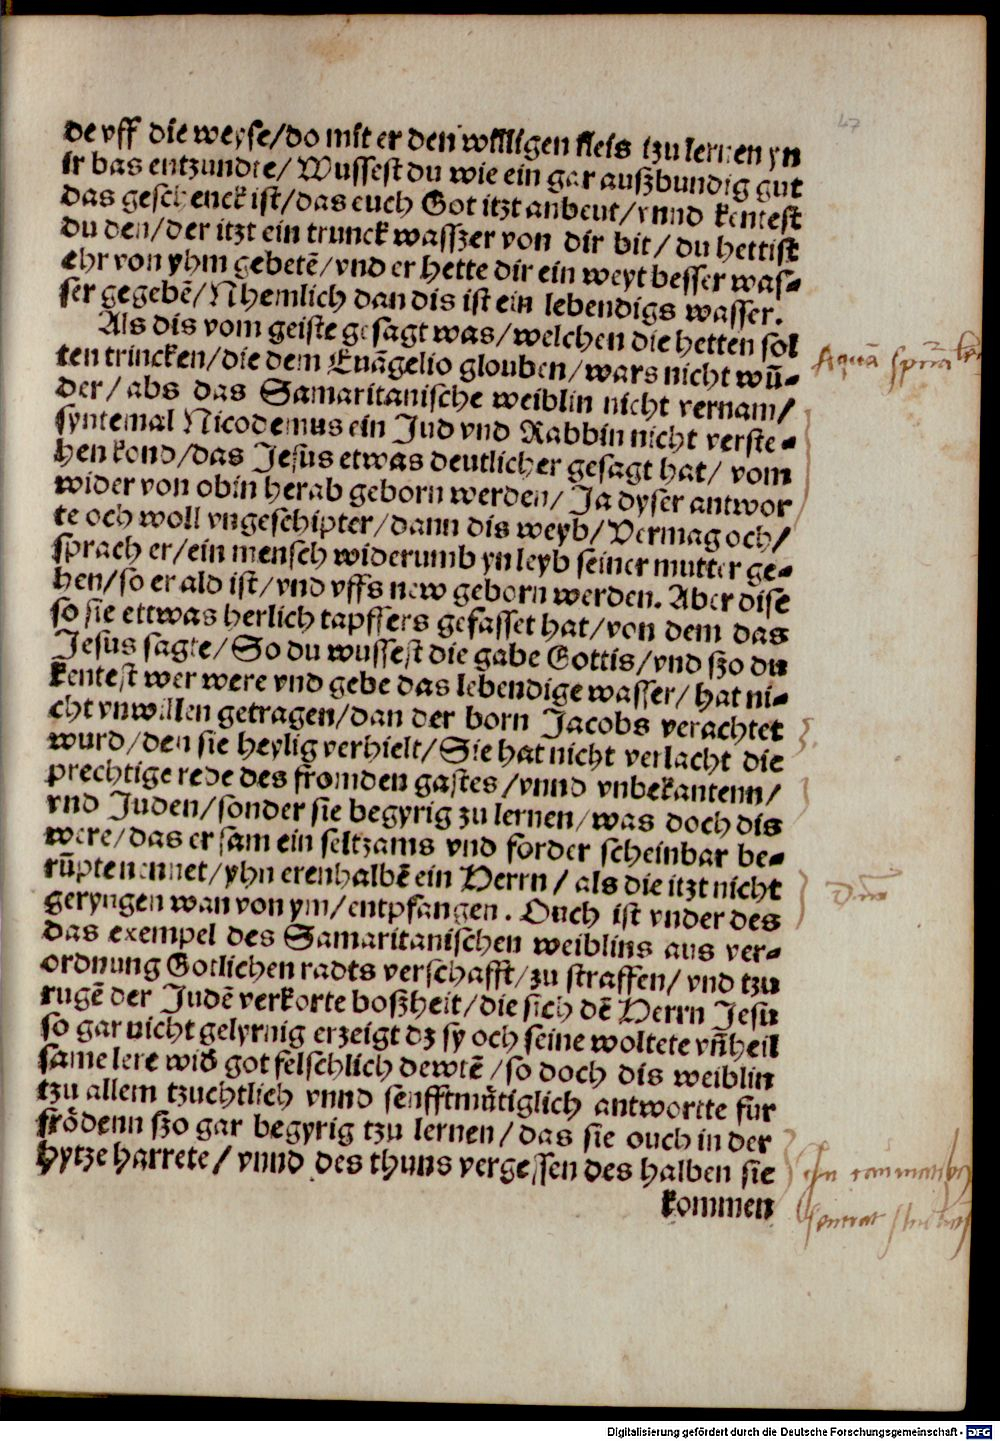 de vff die weyse/do mit er den willigen fleis tzu lernen yn
ir bas entzundte/ Wussest du wie ein gar außbundig gut
das geschenck ist/das euch Got itzt anbeut/vnnd kentest
du den/der itzt ein trunck wasszer von dir bit/ du hettist
ehr von yhm gebetē/vnd er hette dir ein weyt besser was-
ser gegebē/Nhemlich dan dis ist ein lebendigs wasser.
Als dis vom geiste gesagt was/welchen die hetten sol
ten trincken/die dem Euāgelio glouben/wars nicht wū-
der/ abs das Samaritanische weiblin nicht vernam/
syntemal Nicodemus ein Jud vnd Rabbin nicht verste-
hen kond/das Jesus etwas deutlicher gesagt hat/ vom
wider von obin herab geborn werden/ Ja dyser antwor
te och woll vngeschipter/dann dis weyb/Vermag och/
sprach er/ein mensch widerumb yn leyb seiner mutter ge-
hen/so er ald ist/vnd vffs new geborn werden. Aber dise
so sie ettwas herlich tapffers gefasset hat/von dem das
Jesus sagte/ So du wussest die gabe Gottis/vnd szo du
kentest wer were vnd gebe das lebendige wasser/ hat ni-
cht vnwillen getragen/dan der born Jacobs verachtet
wurd/den sie heylig verhielt/Sie hat nicht verlacht die
prechtige rede des fromden gastes/vnnd vnbekantenn/
vnd Juden/sonder sie begyrig zu lernen/was doch dis
were/das er sam ein seltzams vnd forder scheinbar be-
rūpte nennet/yhn erenhalbē ein Herrn/ als die itzt nicht
geryngen wan von ym/entpfangen. Ouch ist vnder des
das exempel des Samaritanischen weiblins aus ver-
ordnung Gotlichen radts verschafft/zu straffen/ vnd tzu
rugē der Judē verkorte boßheit/die sich dē Herrn Jesu
so gar nicht gelyrnig erzeigt dz sy och seine woltete vn̄heil
same lere wið got felschlich dewtē/so doch dis weiblin
tzu allem tzuchtlich vnnd senfftmu̇tiglich antwortte fur
frödenn szo gar begyrig tzu lernen/das sie ouch in der
hytze harrete/ vnnd des thuns vergessen des halben sie
kommen
47
Aquā
Digitalisierung gefördert durch die Deutsche Forschungsgemeinschaft - DFG